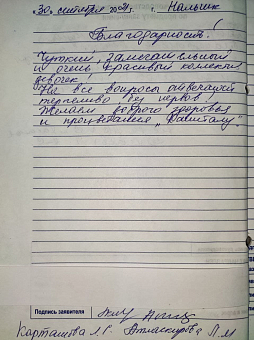 30 сентября 2021г. г. Нальчик
Благодарность!
Чуткий, замечательный
и очень красивый коллектив
девочек!
На все вопросы отвечают
терпеливо, без нервов!
Желаем доброго здоровья
и процветания "
Подпись заявителя
Карташова Л.Г. Атласкирова Л.М